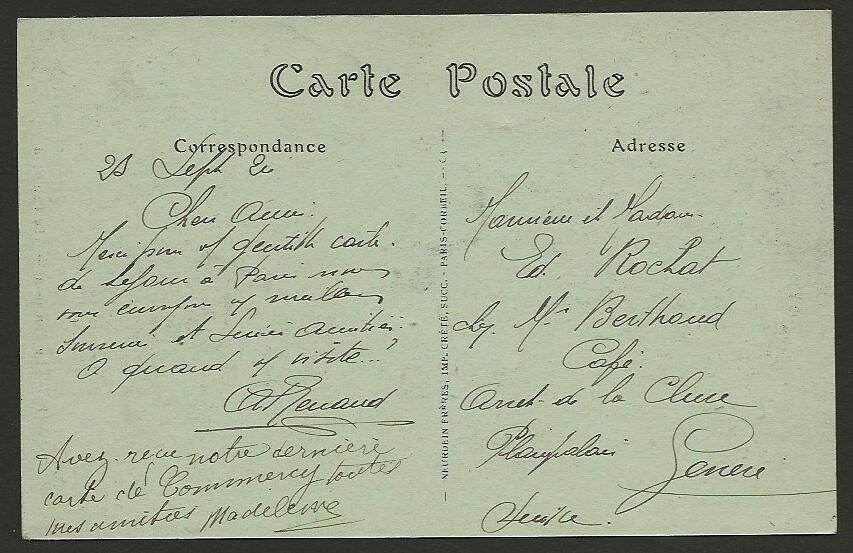 Carte Postale
Correspondance
Adresse
Sept
Cher Ami.
Merci pour gentille carte.
de séjour à Paris nous
vous
Souvenir et
A quand visite..?
A Renaud
Avez reçu notre dernière
carte de Commercy toutes
mes amitiés Madeleine
NEURDEIN FRÈRES, IMP. CRÉTÉ, SUCC. - PARIS-CORBEIL.
Monsieur et Madame
Ed. Rochat
chez Mr Berthoud
Café.
Arrêt de la Cluse
Plainpalais
Genève
Suisse.